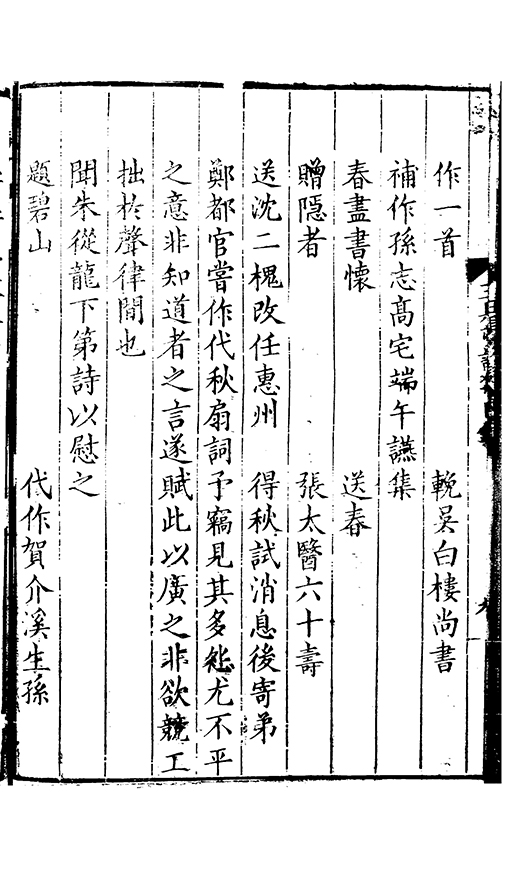 作一首　輓吳白樓尚書
補作孫志髙宅端午讌集
春盡書懷　送春
贈隠者　張太醫六十壽
送沈二槐改任惠州　得秋試消息後寄弟
鄭都官嘗作代秋扇詞予竊見其多尤不平
之意非知道者之言遂賦此以廣之非欲競工
拙於聲律間也
聞朱從龍下第詩以慰之
題碧山　代作賀介溪生孫